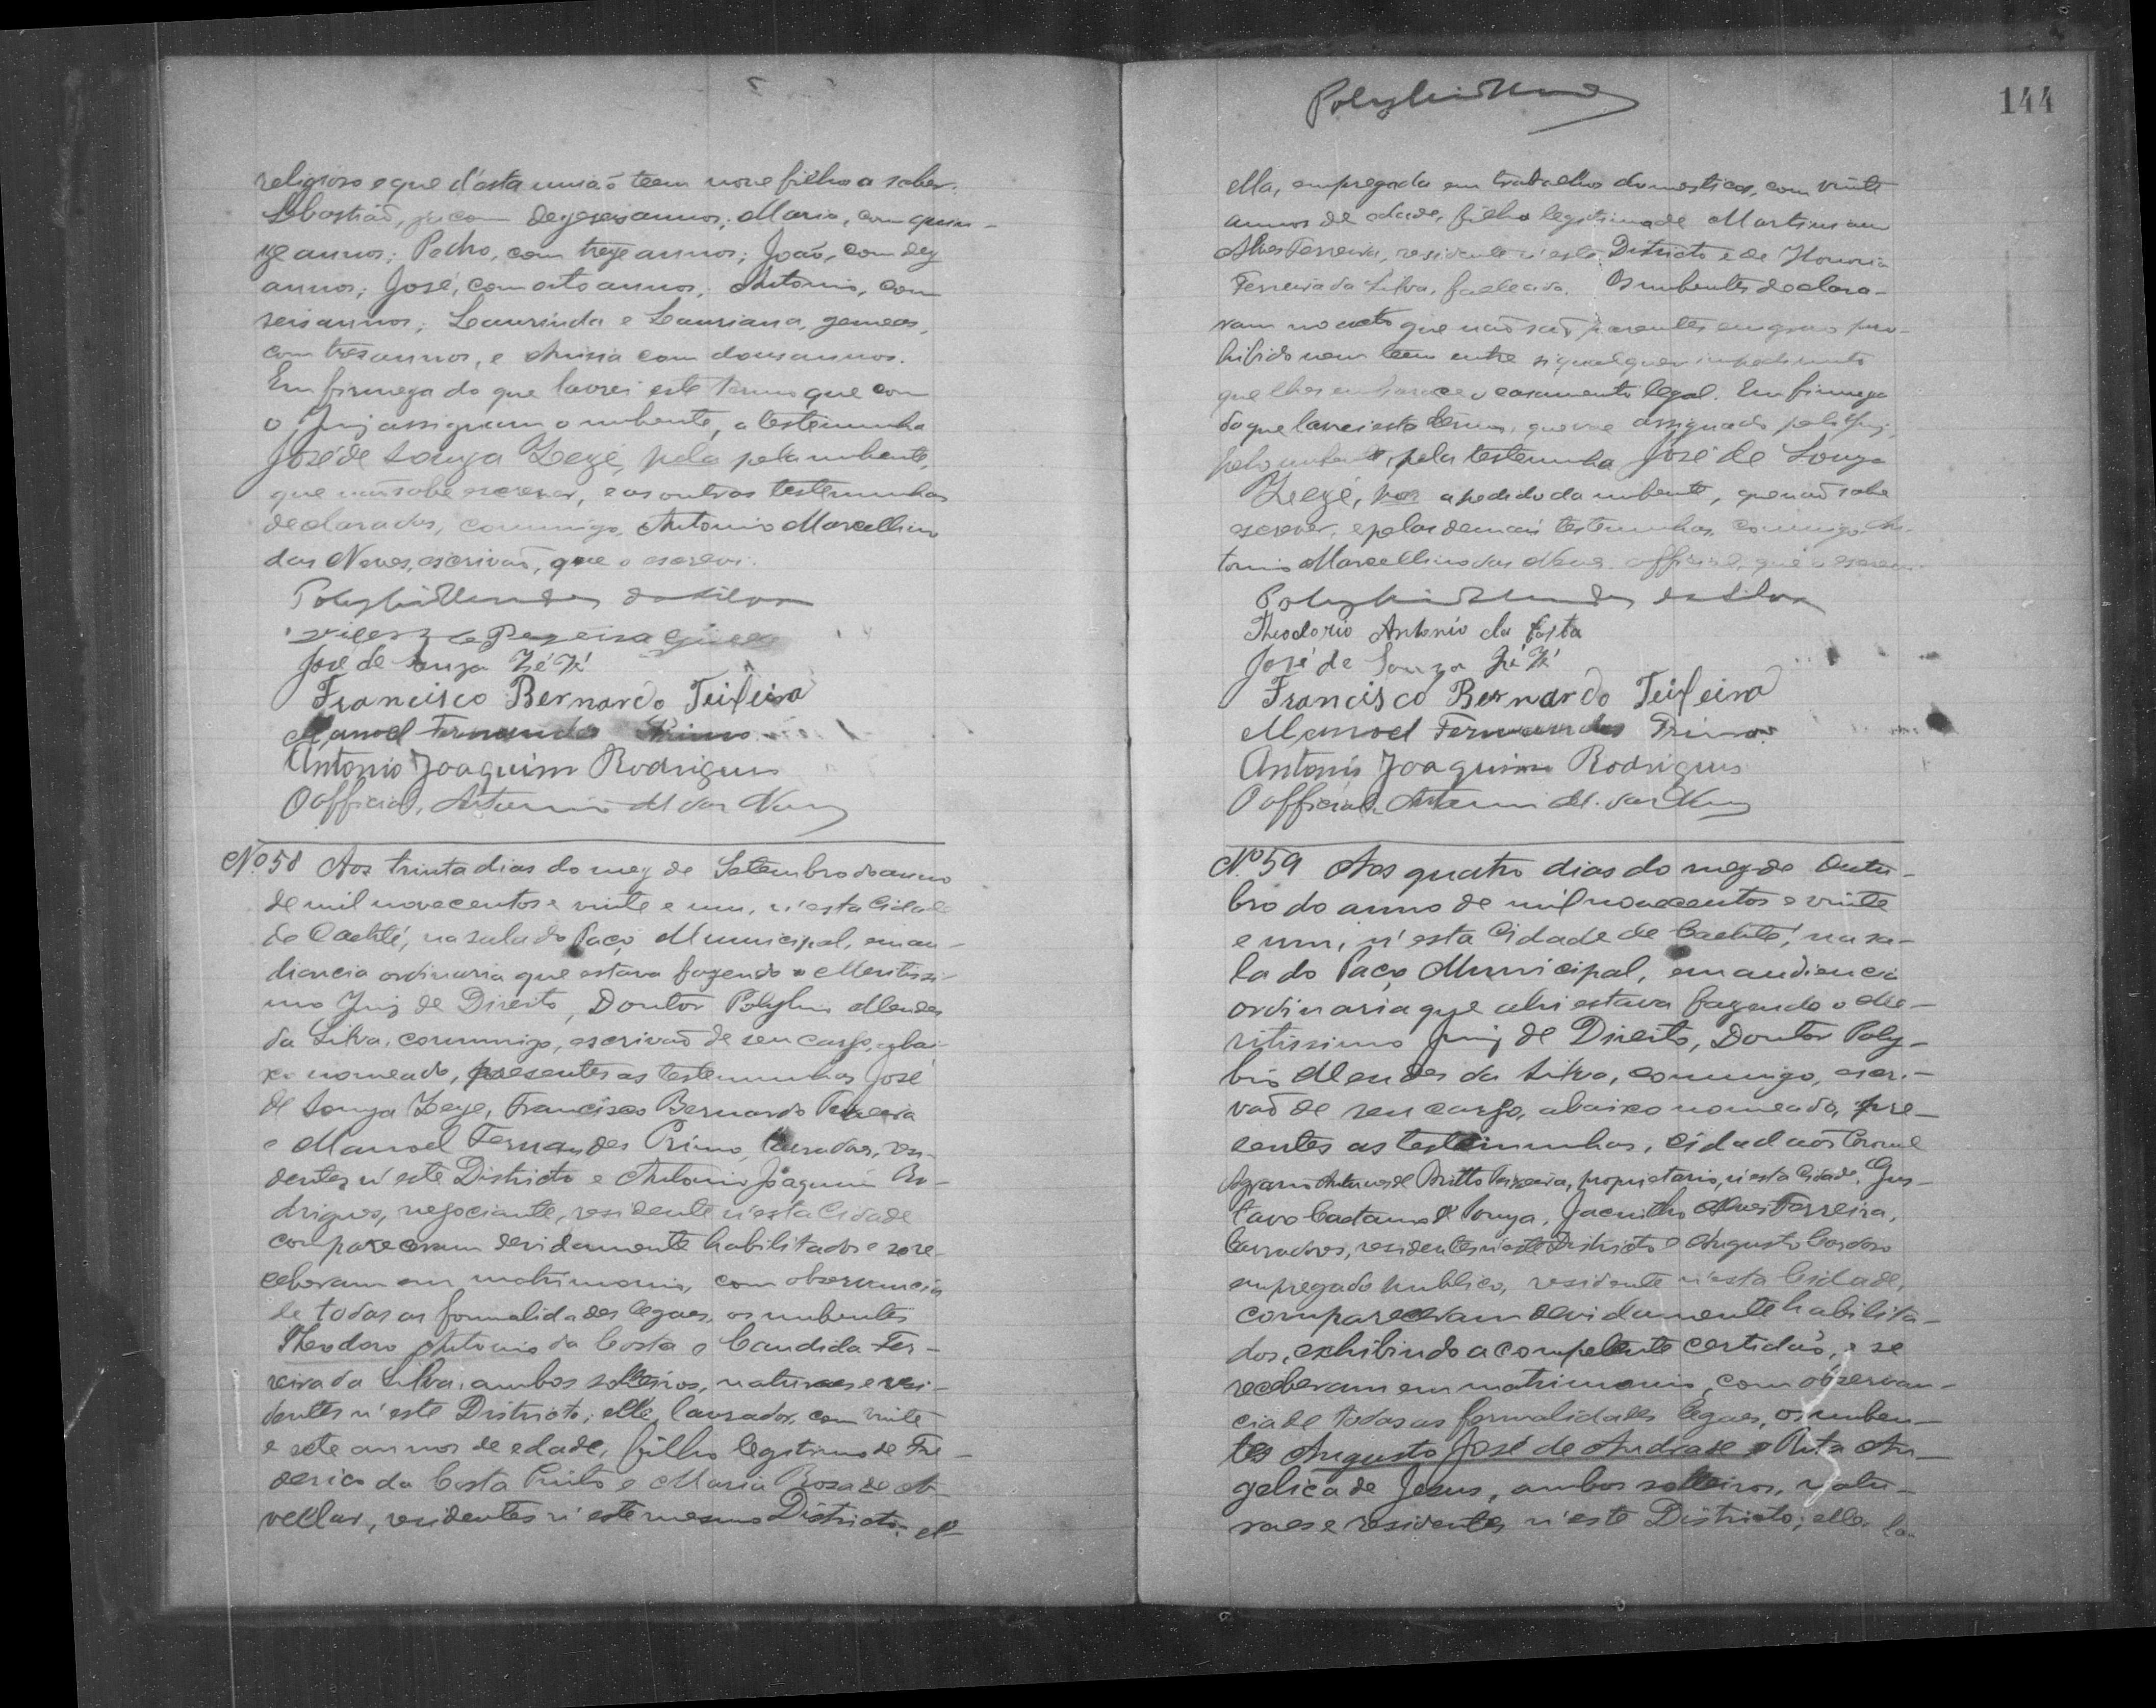 religioso e que d'esta união teem nove filhos a saber.
Sebastião, já com dezeseis annos; Maria, com quin-
ze annos; Pedro, com treze annos; João, com dez
annos; José, com oito annos; Antonio, com
seis annos; Laurinda e Lauriana, gemeas,
com tres annos, e Anisia com dous annos.
Em firmeza do que lavrei este termo que com
o Juiz assignam o nubente, a testemunha
José de Souza Zezé, pela pela nubente,
que não sabe escrever, e as outras testemunhas
declaradas, commigo, Antonio Marcellino
das Neves, escrivão, que o escrevi.
Polybio Mendes da Silva
de Pereira
José de Souza Zé Zé
Francisco Bernardo Teixeira
Manoel Fernandes Primo
Antonio Joaquim Rodrigues
O official, Antonio M das Neves
Nº 58 Aos trinta dias do mez de Setembro do anno
de mil novecentos e vinte e um, n'esta Cidade
de Caeteté, na sala do Paço Municipal, em au-
diencia ordinaria que estava fazendo o Meritissi-
mo Juiz de Direito, Doutor Polybio Mendes
da Silva, commigo, escrivão de seu cargo, abai-
xo nomeado, presentes as testemunhas José
de Souza Zeze, Francisco Bernardo Teixeira
e Manoel Fernandes Primo, lavradores, resi-
dentes n'este Districto e Antonio Joaquim Ro-
drigues, negociante, residente n'esta Cidade
compareceram devidamente habilitados e se re-
ceberam em matrimonio, com observancia
de todas as formalidades legaes, os nubentes
Theodoro Antonio da Costa e Candida Fer-
reira da Silva, ambos solteiros, naturaes e resi-
dentes n'este Districto; elle, lavrador, com vinte
e sete annos de edade, filho legitimo de Fre-
derico da Costa Pinto e Maria Rosa de A-
vellar, residentes n'este mesmo Districto; el-
Polybio Mendes
144
ella, empregada em trabalhos domesticos, com vinte
annos de edade, filha legitima de Martiniano
Alves Ferreira, residente n'este Districto e de Honoria
Ferreira da Silva, fallecida. Os nubentes declara-
ram no acto que não são parentes em grao pro-
hibido nem teem entre si qualquer impedimento
que lhes embarace o casamento legal. Em firmeza
do que lavrei este termo, que vae assignado pelo Juiz,
pelo nubente, pela testemunha José de Souza
Zezé, por a pedido da nubente, que não sabe
escrever, e pelas demais testemunhas, commigo, An-
tonio Marcellino das Neves, official, que o escrevi.
Polybio Mendes da Silva
Theodorio Antonio da Costa
José de Souza Zé Zé
Francisco Bernardo Teixeira
Manoel Fernandes Primo
Antonio Joaquim Rodrigues
O official, Antonio M. das Neves
Nº 59 Aos quatro dias do mez de Outu-
bro do anno de mil novecentos e vinte
e um, n'esta Cidade de Caeteté, na sa-
la do Paço Municipal, em audiencia
ordinaria que ahi estava fazendo o Me-
ritissimo Juiz de Direito, Doutor Poly-
bio Mendes da Silva, commigo, escri-
vão de seu cargo, abaixo nomeado, pre-
sentes as testemunhas, cidadãos Coronel
Britto Teixeira, proprietario, n'esta Cidade, Gus-
tavo Caetano de Souza, Jacintho Alves Ferreira,
lavradores, residentes n'este Districto e Augusto Cardoso
empregado publico, residente n'esta Cidade,
compareceram devidamente habilita-
dos, exhibindo a competente certidão, e se
receberam em matrimonio, com observan-
cia de todas as formalidades legaes, os nuben-
tes Augusto José de Andrade e Rita An-
gelica de Jesus, ambos solteiros, natu-
raes e residentes n'este Districto; elle, la-